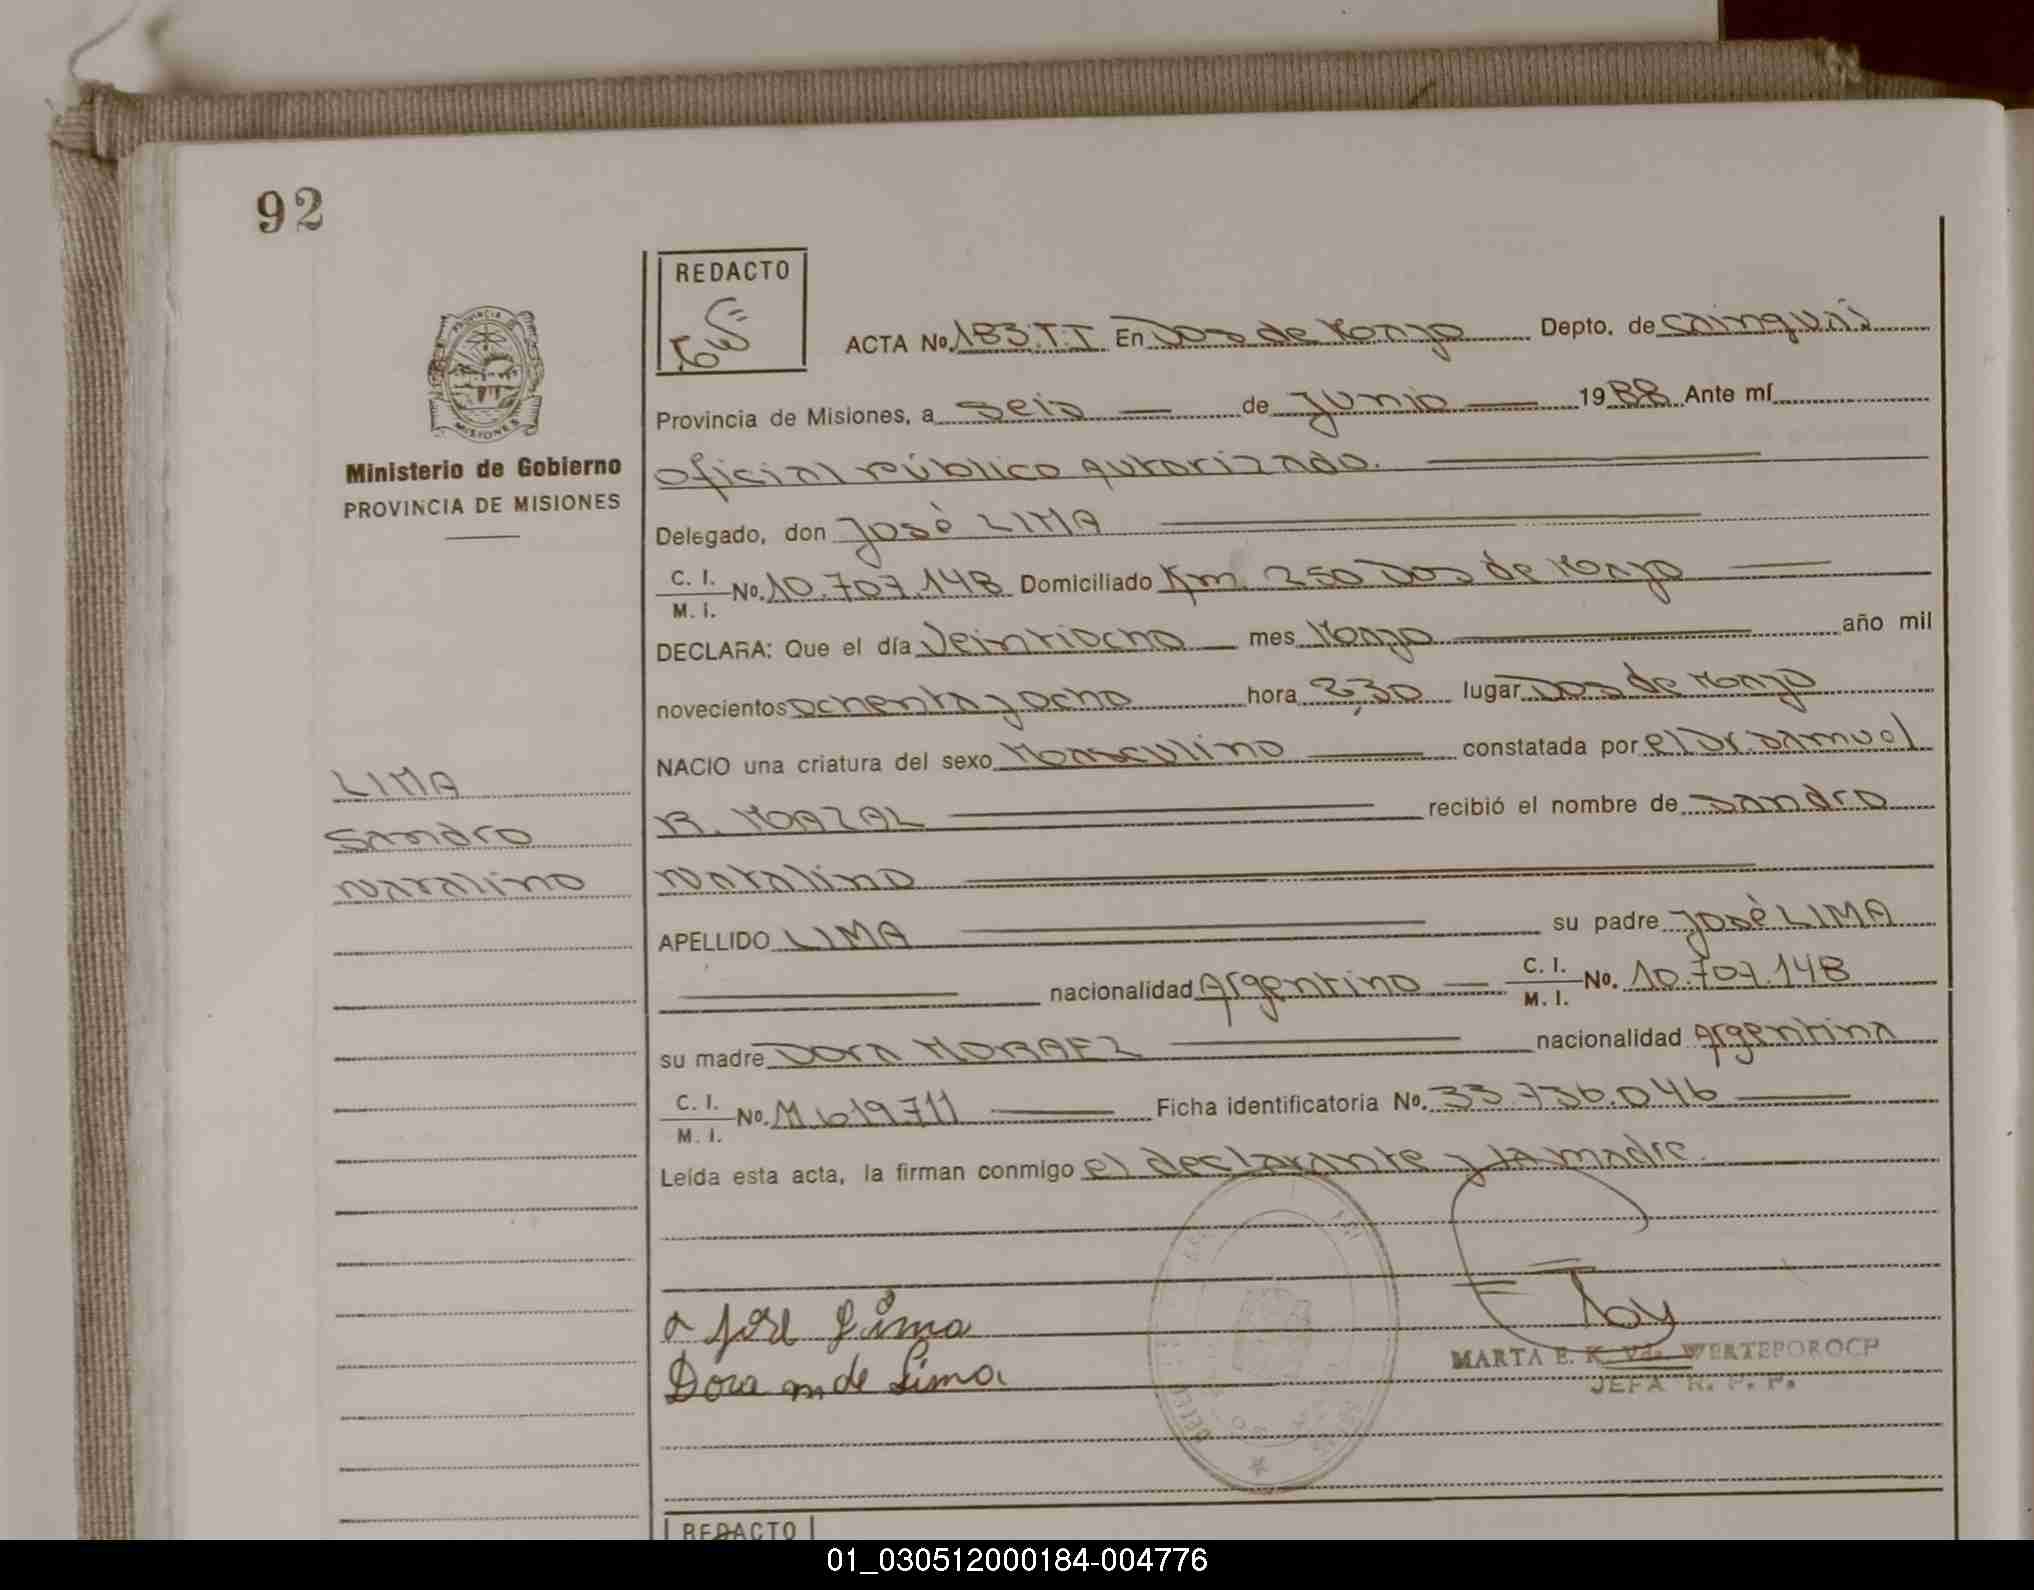 92
REDACTO
ACTA No. 183.T.I En Dos de Mayo Depto. de Cainguás
Provincia de Misiones, a seis de Junio 1988 Ante mí
Oficial Público Autorizado.
Delegado, don José LIMA
C. I.
M. I. No. 10.707.148 Domiciliado Km. 250 Dos de Mayo
DECLARA: Que el día Veintiocho mes Mayo año mil
novecientos ochenta y ocho hora 2,30 lugar Dos de Mayo
NACIO una criatura del sexo Masculino constatada por el Dr. Samuel
R. recibió el nombre de Sandro
Natalino
APELLIDO LIMA su padre José LIMA
nacionalidad Argentino C. I.
M. I. No. 10.707.148
su madre Dora MORAEZ nacionalidad Argentina
C. I.
M. I. No. M 619.711 Ficha identificatoria No. 33.736.046
Leída esta acta, la firman conmigo el declarante y la madre.
José Lima
Dora m. de Lima.
MARTA E. K. Vda. WERTEPOROCH
JEFA R. P. P.
PROVINCIA
MISIONES
Ministerio de Gobierno
PROVINCIA DE MISIONES
LIMA
Sandro
Natalino
REDACTO
01_030512000184-004776